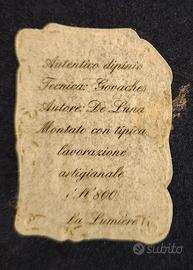 Autentico dipinto
Tecnica: Govaches
Autore: De Luna
Montato con tipica
lavorazione
artigianale
'800
La Lumière
subito